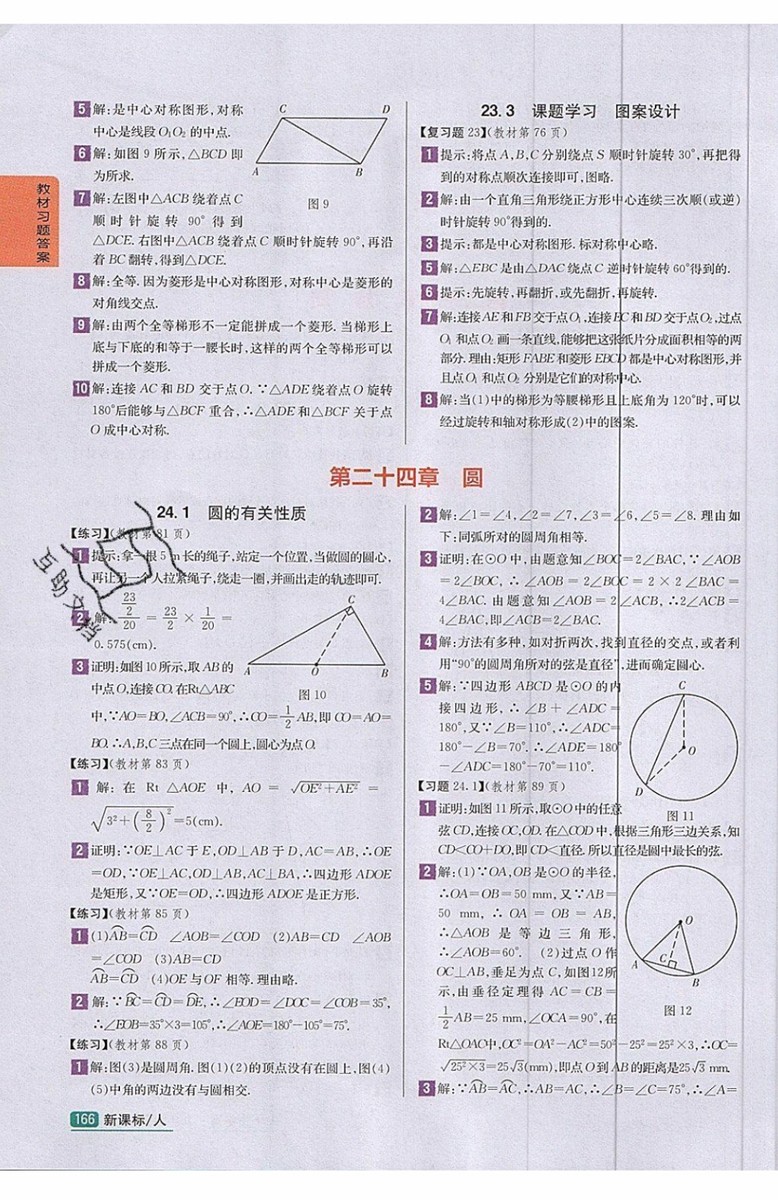 教材习题答案
5 解:是中心对称图形,对称
中心是线段O₁O₂的中点.
6 解:如图9所示,△BCD即
为所求.
7 解:左图中△ACB绕着点C
顺时针旋转90°得到
△DCE.右图中△ACB绕着点C顺时针旋转90°,再沿
着BC翻转,得到△DCE.
C D
A B
图9
8 解:全等.因为菱形是中心对称图形,对称中心是菱形的
对角线交点.
9 解:由两个全等梯形不一定能拼成一个菱形.当梯形上
底与下底的和等于一腰长时,这样的两个全等梯形可以
拼成一个菱形.
10 解:连接AC和BD交于点O.∵△ADE绕着点O旋转
180°后能够与△BCF重合,∴△ADE和△BCF关于点
O成中心对称.
23.3 课题学习 图案设计
【复习题23】(教材第76页)
1 提示:将点A,B,C分别绕点S顺时针旋转30°,再把得
到的对称点顺次连接即可,图略.
2 解:由一个直角三角形绕正方形中心连续三次顺(或逆)
时针旋转90°得到的.
3 提示:都是中心对称图形.标对称中心略.
5 解:△EBC是由△DAC绕点C逆时针旋转60°得到的.
6 提示:先旋转,再翻折,或先翻折,再旋转.
7 解:连接AE和FB交于点O₁,连接EC和BD交于点O₂,过点
O₁和点O₂画一条直线,能够把这张纸片分成面积相等的两
部分.理由:矩形FABE和菱形EBCD都是中心对称图形,并
且点O₁和点O₂分别是它们的对称中心.
8 解:当(1)中的梯形为等腰梯形且上底角为120°时,可以
经过旋转和轴对称形成(2)中的图案.
第二十四章 圆
24.1 圆的有关性质
【练习】(教材第81页)
1 提示:拿一根5 m长的绳子,站定一个位置,当做圆的圆心,
再让另一个人拉紧绳子,绕走一圈,并画出走的轨迹即可.
2 解:(23/2)/20=23/2×1/20=
0.575(cm).
3 证明:如图10所示,取AB的
中点O,连接CO.在Rt△ABC
C
A O B
图10
中,∵AO=BO,∠ACB=90°,∴CO=1/2AB,即CO=AO=
BO.∴A,B,C三点在同一个圆上,圆心为点O.
【练习】(教材第83页)
1 解:在Rt△AOE中,AO=√(OE²+AE²)=
√(3²+(8/2)²)=5(cm).
2 证明:∵OE⊥AC于E,OD⊥AB于D,AC=AB,∴OE
=OD,∵OE⊥AC,OD⊥AB,AC⊥BA,∴四边形ADOE
是矩形,又∵OE=OD,∴四边形ADOE是正方形.
【练习】(教材第85页)
1 (1)A͡B=C͡D ∠AOB=∠COD (2)AB=CD ∠AOB
=∠COD (3)AB=CD
A͡B=C͡D (4)OE与OF相等.理由略.
2 解:∵B͡C=C͡D=D͡E,∴∠EOD=∠DOC=∠COB=35°,
∴∠EOB=35°×3=105°,∴∠AOE=180°-105°=75°.
【练习】(教材第88页)
1 解:图(3)是圆周角.图(1)(2)的顶点没有在圆上,图(4)
(5)中角的两边没有与圆相交.
2 解:∠1=∠4,∠2=∠7,∠3=∠6,∠5=∠8.理由如
下:同弧所对的圆周角相等.
3 证明:在⊙O中,由题意知∠BOC=2∠BAC,∵∠AOB
=2∠BOC,∴∠AOB=2∠BOC=2×2∠BAC=
4∠BAC.由题意知∠AOB=2∠ACB,∴2∠ACB=
4∠BAC,即∠ACB=2∠BAC.
4 解:方法有多种,如对折两次,找到直径的交点,或者利
用“90°的圆周角所对的弦是直径”,进而确定圆心.
5 解:∵四边形ABCD是⊙O的内
接四边形,∴∠B+∠ADC=
180°,又∵∠B=110°,∴∠ADC=
180°-∠B=70°.∴∠ADE=180°
-∠ADC=180°-70°=110°.
C
O
D
图11
【习题24.1】(教材第89页)
1 证明:如图11所示,取⊙O中的任意
弦CD,连接OC,OD.在△COD中,根据三角形三边关系,知
CD<CO+DO,即CD<直径.所以直径是圆中最长的弦.
2 解:(1)∵OA,OB是⊙O的半径,
∴OA=OB=50 mm,又∵AB=
50 mm,∴OA=OB=AB,
∴△AOB是等边三角形,
∴∠AOB=60°. (2)过点O作
OC⊥AB,垂足为点C,如图12所
示,由垂径定理得AC=CB=
1/2AB=25 mm,∠OCA=90°,在
O
A C B
图12
Rt△OAC中,OC²=OA²-AC²=50²-25²=25²×3,∴OC=
√(25²×3)=25√3(mm),即点O到AB的距离是25√3 mm.
3 解:∵A͡B=A͡C,∴AB=AC,∴∠B=∠C=75°,∴∠A=
166 新课标/人
互助文档